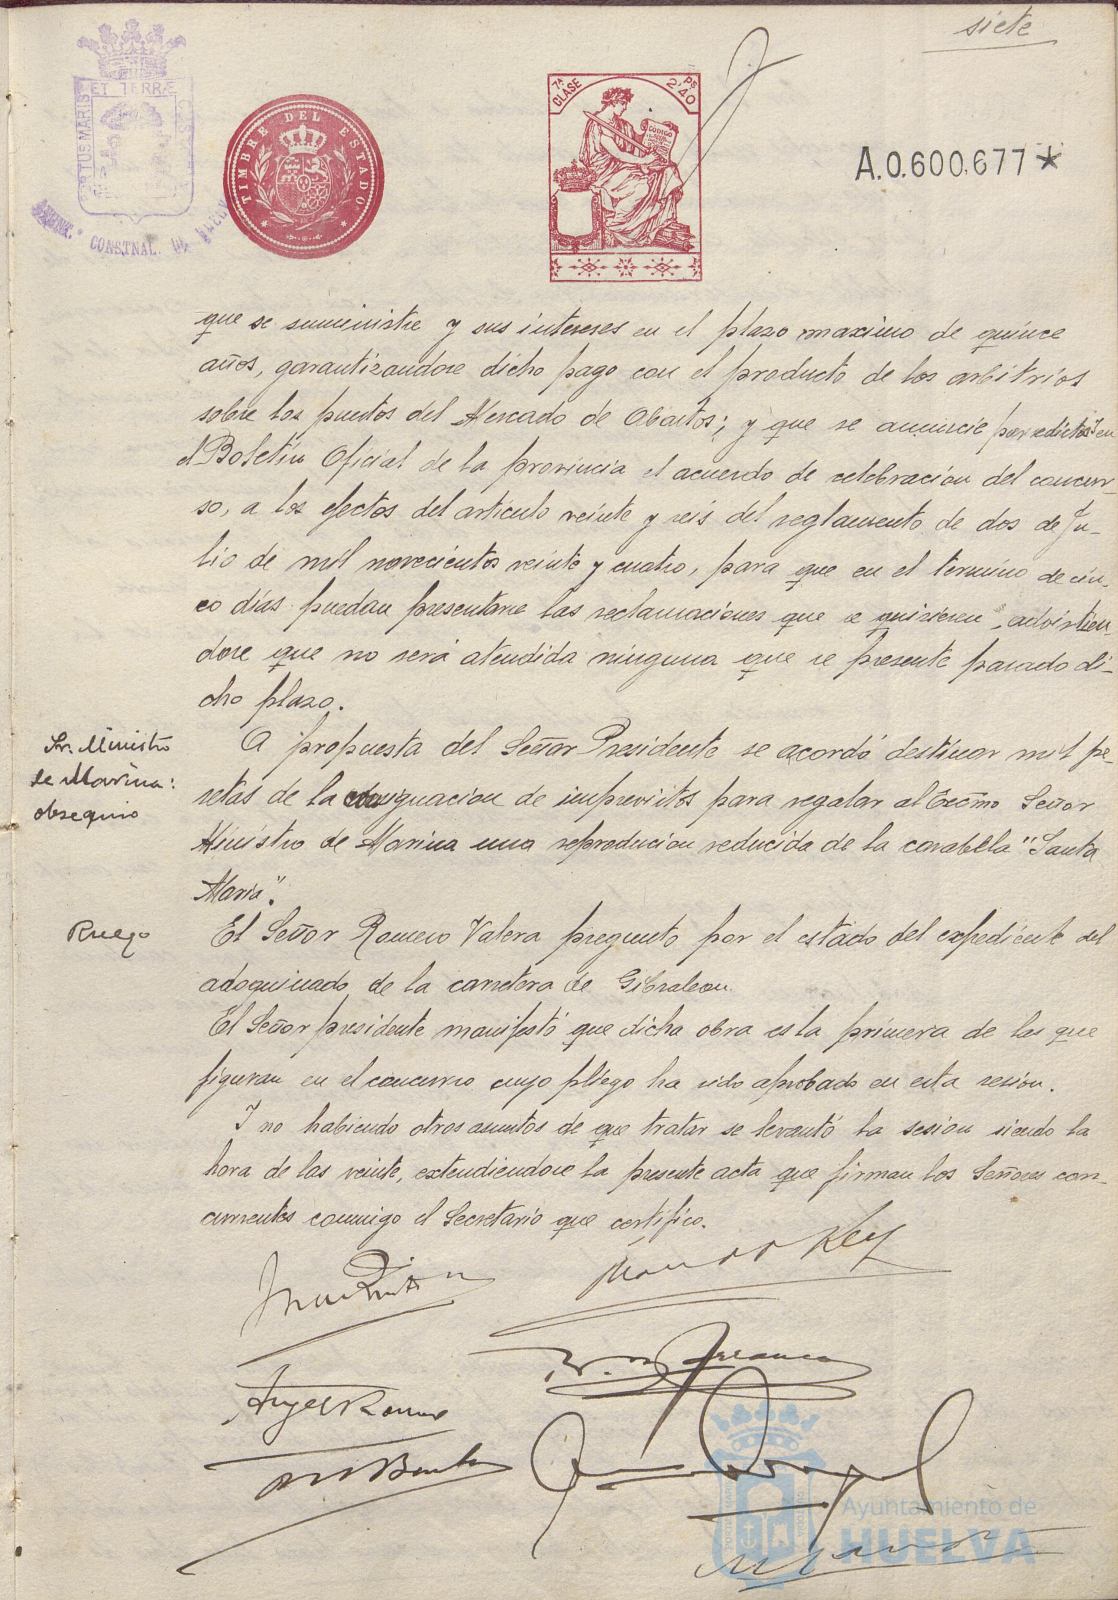 siete
PORTUS MARIS ET TERRÆ CUSTODIA
AYUNT. CONSTNAL. DE HUELVA
TIMBRE DEL ESTADO
7ª CLASE
PS 2'40
CODIGO
A.0.600.677 *
que se suministre y sus intereses en el plazo maximo de quince
años, garantizandose dicho pago con el producto de los arbitrios
sobre los puestos del Mercado de Abastos; y que se anuncie por edictos en
el Boletín Oficial de la provincia el acuerdo de celebracion del concur-
so, a los efectos del artículo veinte y seis del reglamento de dos de Ju-
lio de mil novecientos veinte y cuatro, para que en el termino de cin-
co días puedan presentarse las reclamaciones que se quisieren, advirtien
dose que no será atendida ninguna que se presente pasado di-
cho plazo.
Sr. Ministro
de Marina:
obsequio
A propuesta del Señor Presidente se acordó destinar mil pe-
setas de la consignacion de imprevistos para regalar al Excmo Señor
Ministro de Marina una reproducion reducida de la carabella "Santa
Maria".
Ruego
El Señor Romero Valera pregunto por el estado del expediente del
adoquinado de la carretera de Gibraleon
El Señor presidente manifestó que dicha obra es la primera de las que
figuran en el concurso cuyo pliego ha sido aprobado en esta sesion.
Y no habiendo otros asuntos de que tratar se levantó la sesion siendo la
hora de las veinte, extendiendose la presente acta que firman los Señores con-
currentes conmigo el Secretario que certifico.
Angel Romero
Ayuntamiento de
HUELVA